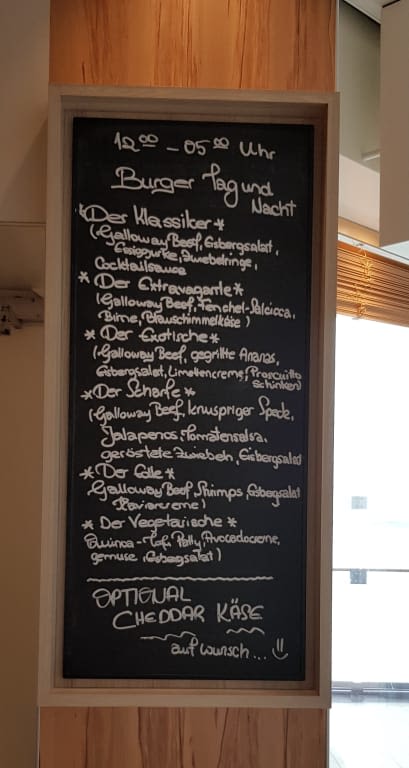 12 00 - 05 00 Uhr
Burger Tag und
Nacht
*Der Klassiker*
(Galloway Beef, Eisbergsalat,
Essiggurke, Zwiebelringe,
Cocktailsauce
* Der Extravagante*
(Galloway Beef, Fenchel-
Birne, Blauschimmelkäse)
* Der Exotische*
(Galloway Beef, gegrillte Ananas,
Eisbergsalat, Limettencreme, Proscuitto
Schinken)
*Der Scharfe*
(Galloway Beef, knuspriger Speck,
Jalapenos, Tomatensalsa,
geröstete Zwiebeln, Eisbergsalat
*Der Edle*
Galloway Beef, Shrimps, Eisbergsalat
Kaviarcreme)
* Der Vegetarische *
Quinoa-Tofu Patty, Avocadocreme,
gemüse, Eisbergsalat)
OPTIONAL
CHEDDAR KÄSE
auf Wunsch...